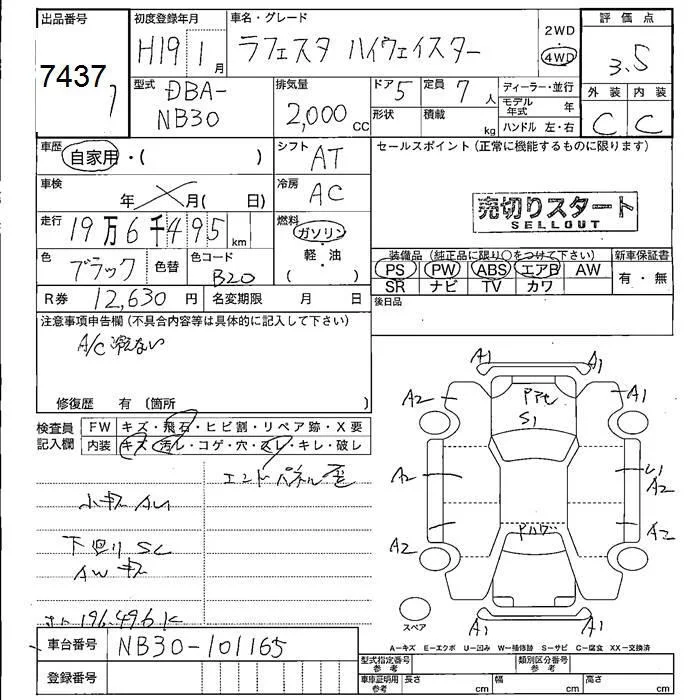 出品番号 初度登録年月 車名・グレード 評価点
7437 H19 1月 ラフェスタ ハイウェイスター 2WD 4WD 3.5
型式 DBA-NB30 排気量 2,000cc ドア 5 定員 7人 ディーラー・並行 外装 内装
形状 積載 kg モデル年式 年 C C
ハンドル 左・右
車歴 自家用・( ) シフト AT セールスポイント (正常に機能するものに限ります)
車検 年 月( 日) 冷房 AC 売切りスタート
SELLOUT
走行 19万6千495km 燃料 ガソリン・軽油 ( )
色 ブラック 色替 色コード B20 装備品 (純正品に限り○をつけて下さい) 新車保証書
PS PW ABS エアB AW 有・無
SR ナビ TV カワ
R券 12,630円 名変期限 月 日 後日品
注意事項申告欄 (不具合内容等は具体的に記入して下さい)
A/C冷えない
修復歴 有 (箇所 )
検査員記入欄 FW キズ・飛石・ヒビ割・リペア跡・X要
内装 キズ・汚レ・コゲ・穴・スレ・キレ・破レ
エンドパネル歪
小キズ AU
下回り SC
AWキズ
196,496K
A1 A1
A2 A1
S1
A2 U1
A2
A2 A2
A1 A1
スペア
A-キズ E-エクボ U-凹み W-補修跡 S-サビ C-腐食 XX-交換済
車台番号 NB30-101165 型式指定番号 参考 類別区分番号 参考
登録番号 車庫証明用 参考 長さ cm 幅 cm 高さ cm